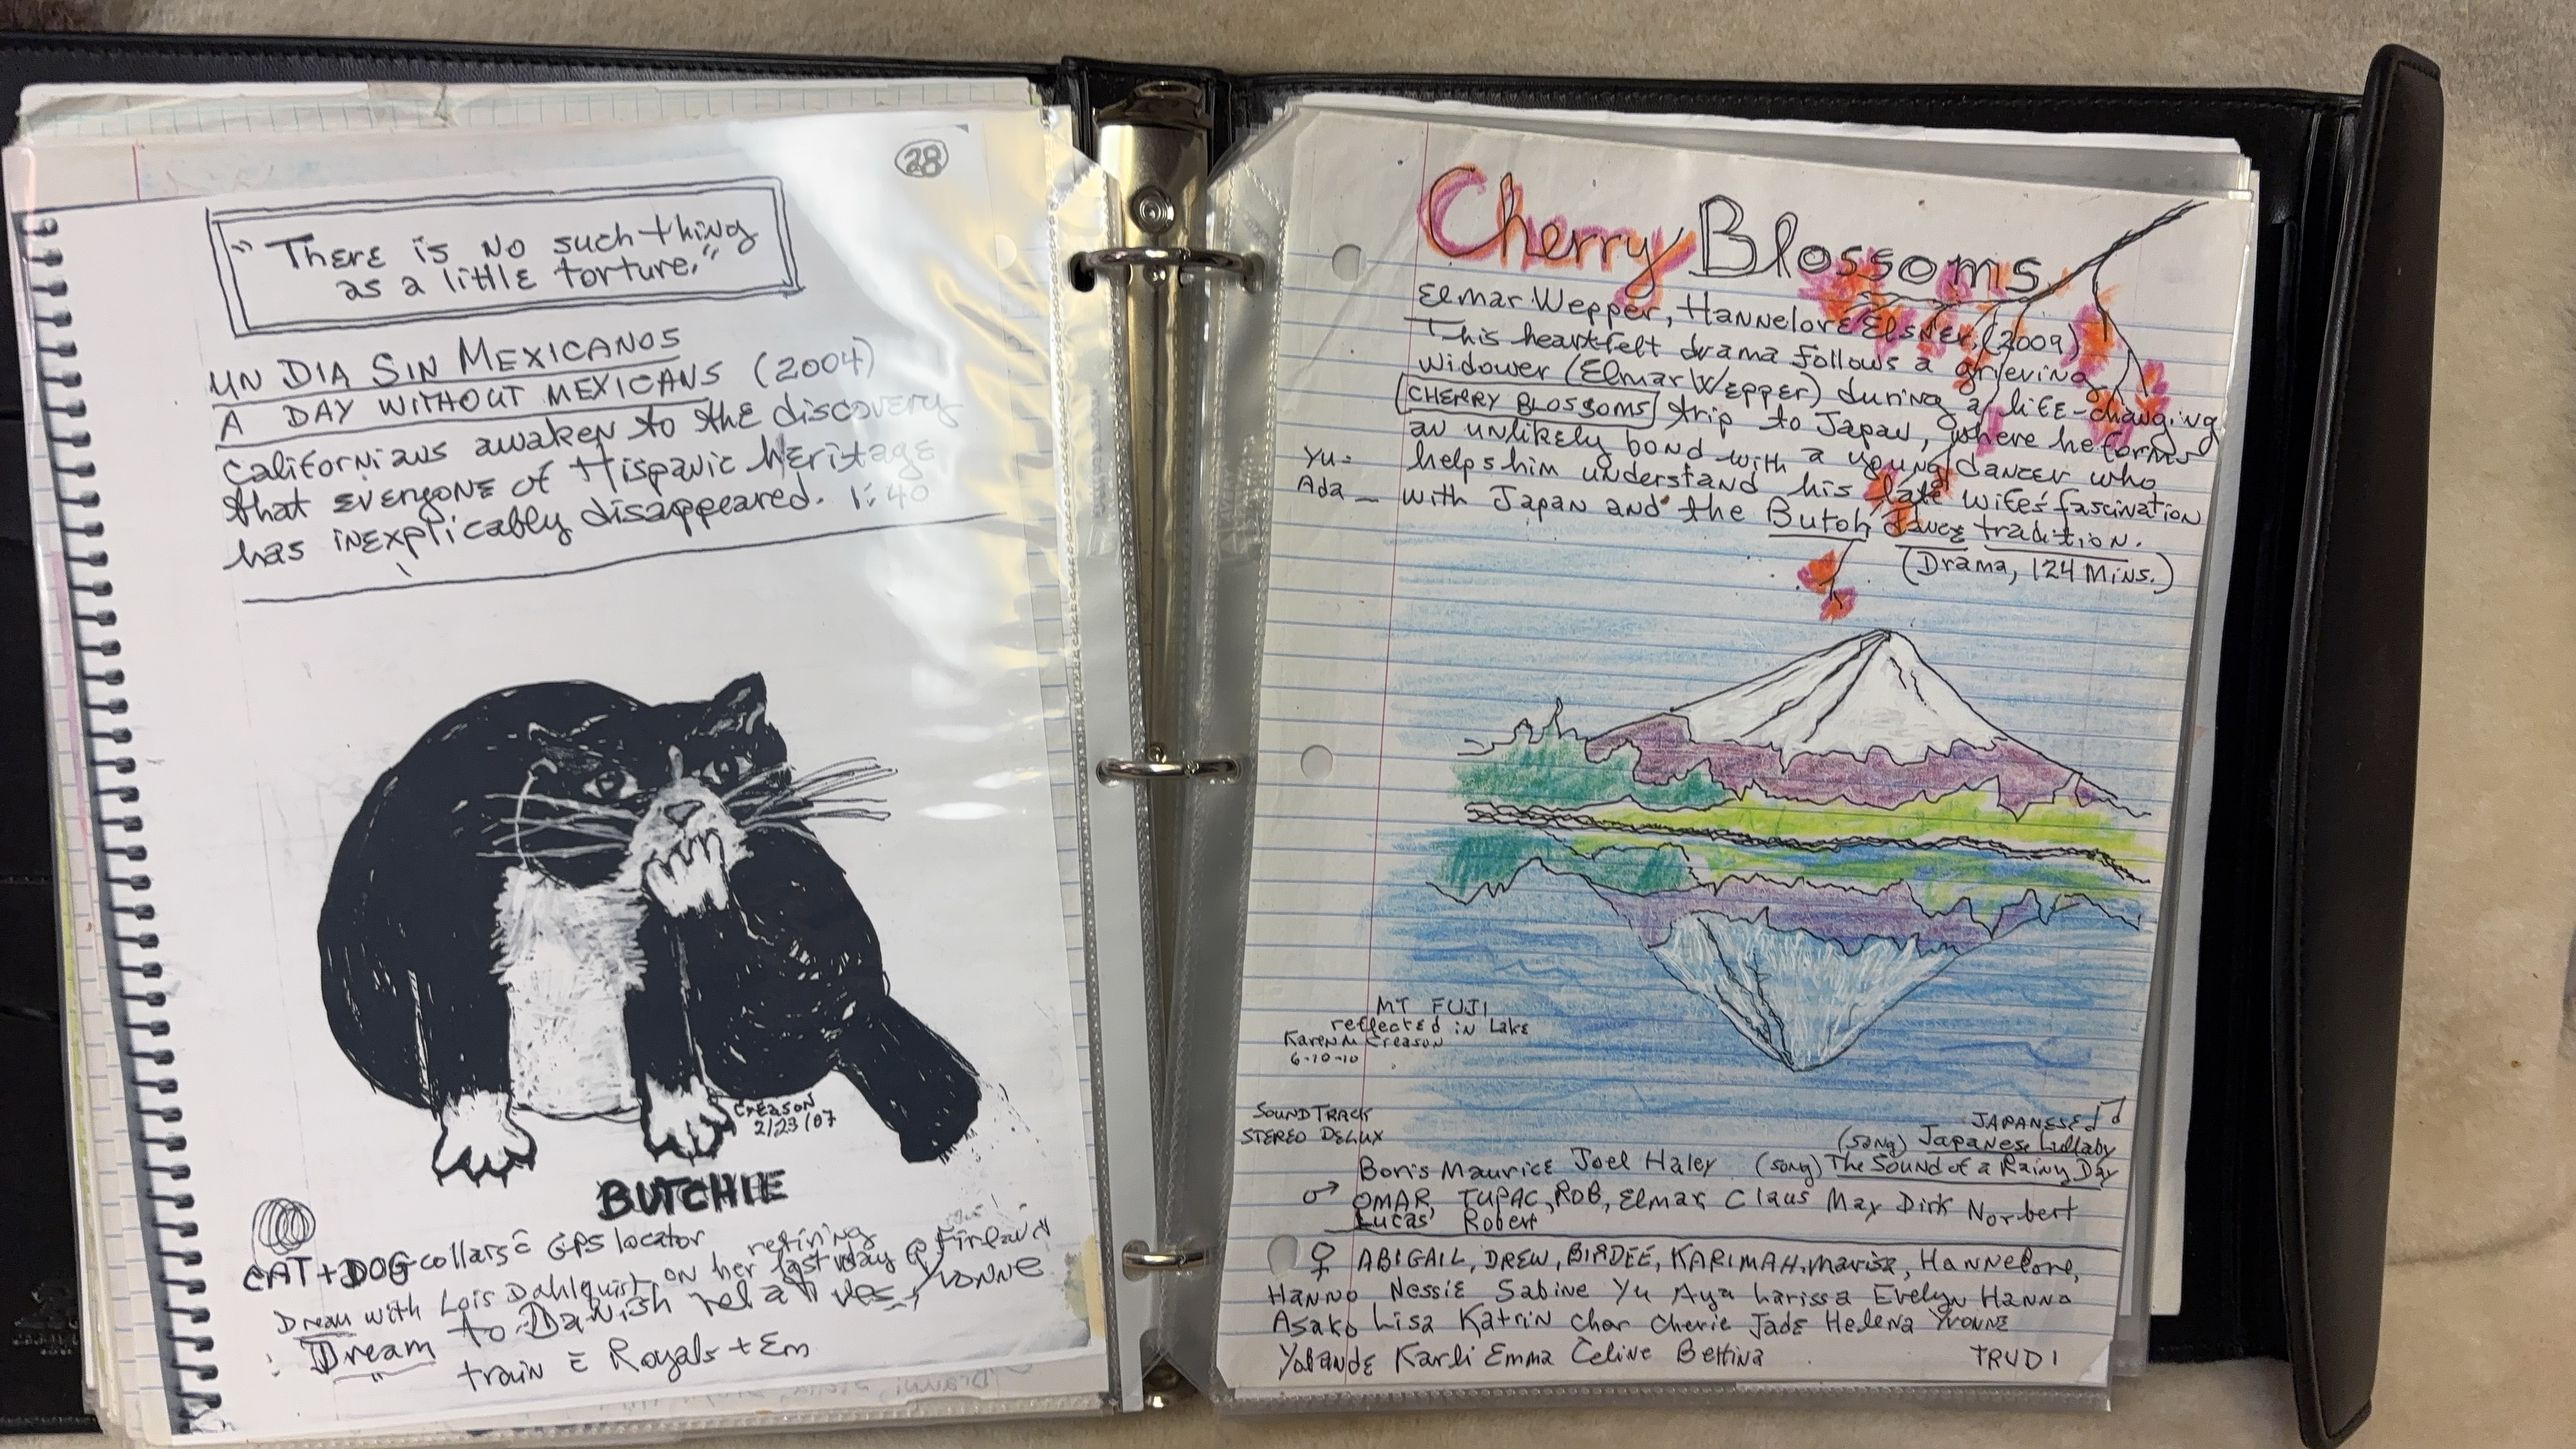 28
"There is no such thing
as a little torture."
UN DIA SIN MEXICANOS
A DAY WITHOUT MEXICANS (2004)
Californians awaken to the discovery
that everyone of Hispanic heritage
has inexplicably disappeared. 1:40
Creason
2/23/07
BUTCHIE
CAT + DOG collars c̄ GPS locator
Dream with Lois Dahlquist on her last day @ Finland
retiring
Dream to Danish relatives Yvonne
train c̄ Royals + Em
Cherry Blossoms
Elmar Wepper, Hannelore Elsner, (2009)
This heartfelt drama follows a grieving
widower (Elmar Wepper) during a life-changing
CHERRY BLOSSOMS trip to Japan, where he forms
an unlikely bond with a young dancer who
Yu= helps him understand his late wife's fascination
Ada — with Japan and the Butoh dance tradition.
(Drama, 124 Mins.)
MT FUJI
reflected in Lake
Karen M Creason
6-10-10
SOUNDTRACK
STEREO DELUX
JAPANESE
(song) Japanese Lullaby
Boris Maurice Joel Haley (song) The Sound of a Rainy Day
♂ OMAR, TUPAC, ROB, Elmar Claus May Dirk Norbert
Lucas Robert
♀ ABIGAIL, DREW, BIRDEE, KARIMAH, Marisa, Hannelore,
Hanno Nessie Sabine Yu Aya Larissa Evelyn Hanna
Asako Lisa Katrin Char Cherie Jade Helena Yvonne
Yolande Karli Emma Celine Bettina TRUDI